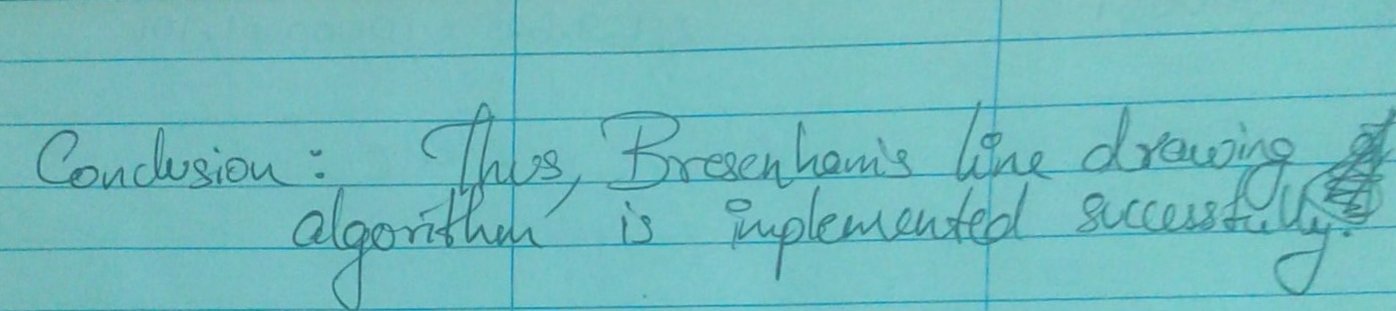 Conclusion: Thus, Bresenham's line drawing
algorithm is implemented successfully.